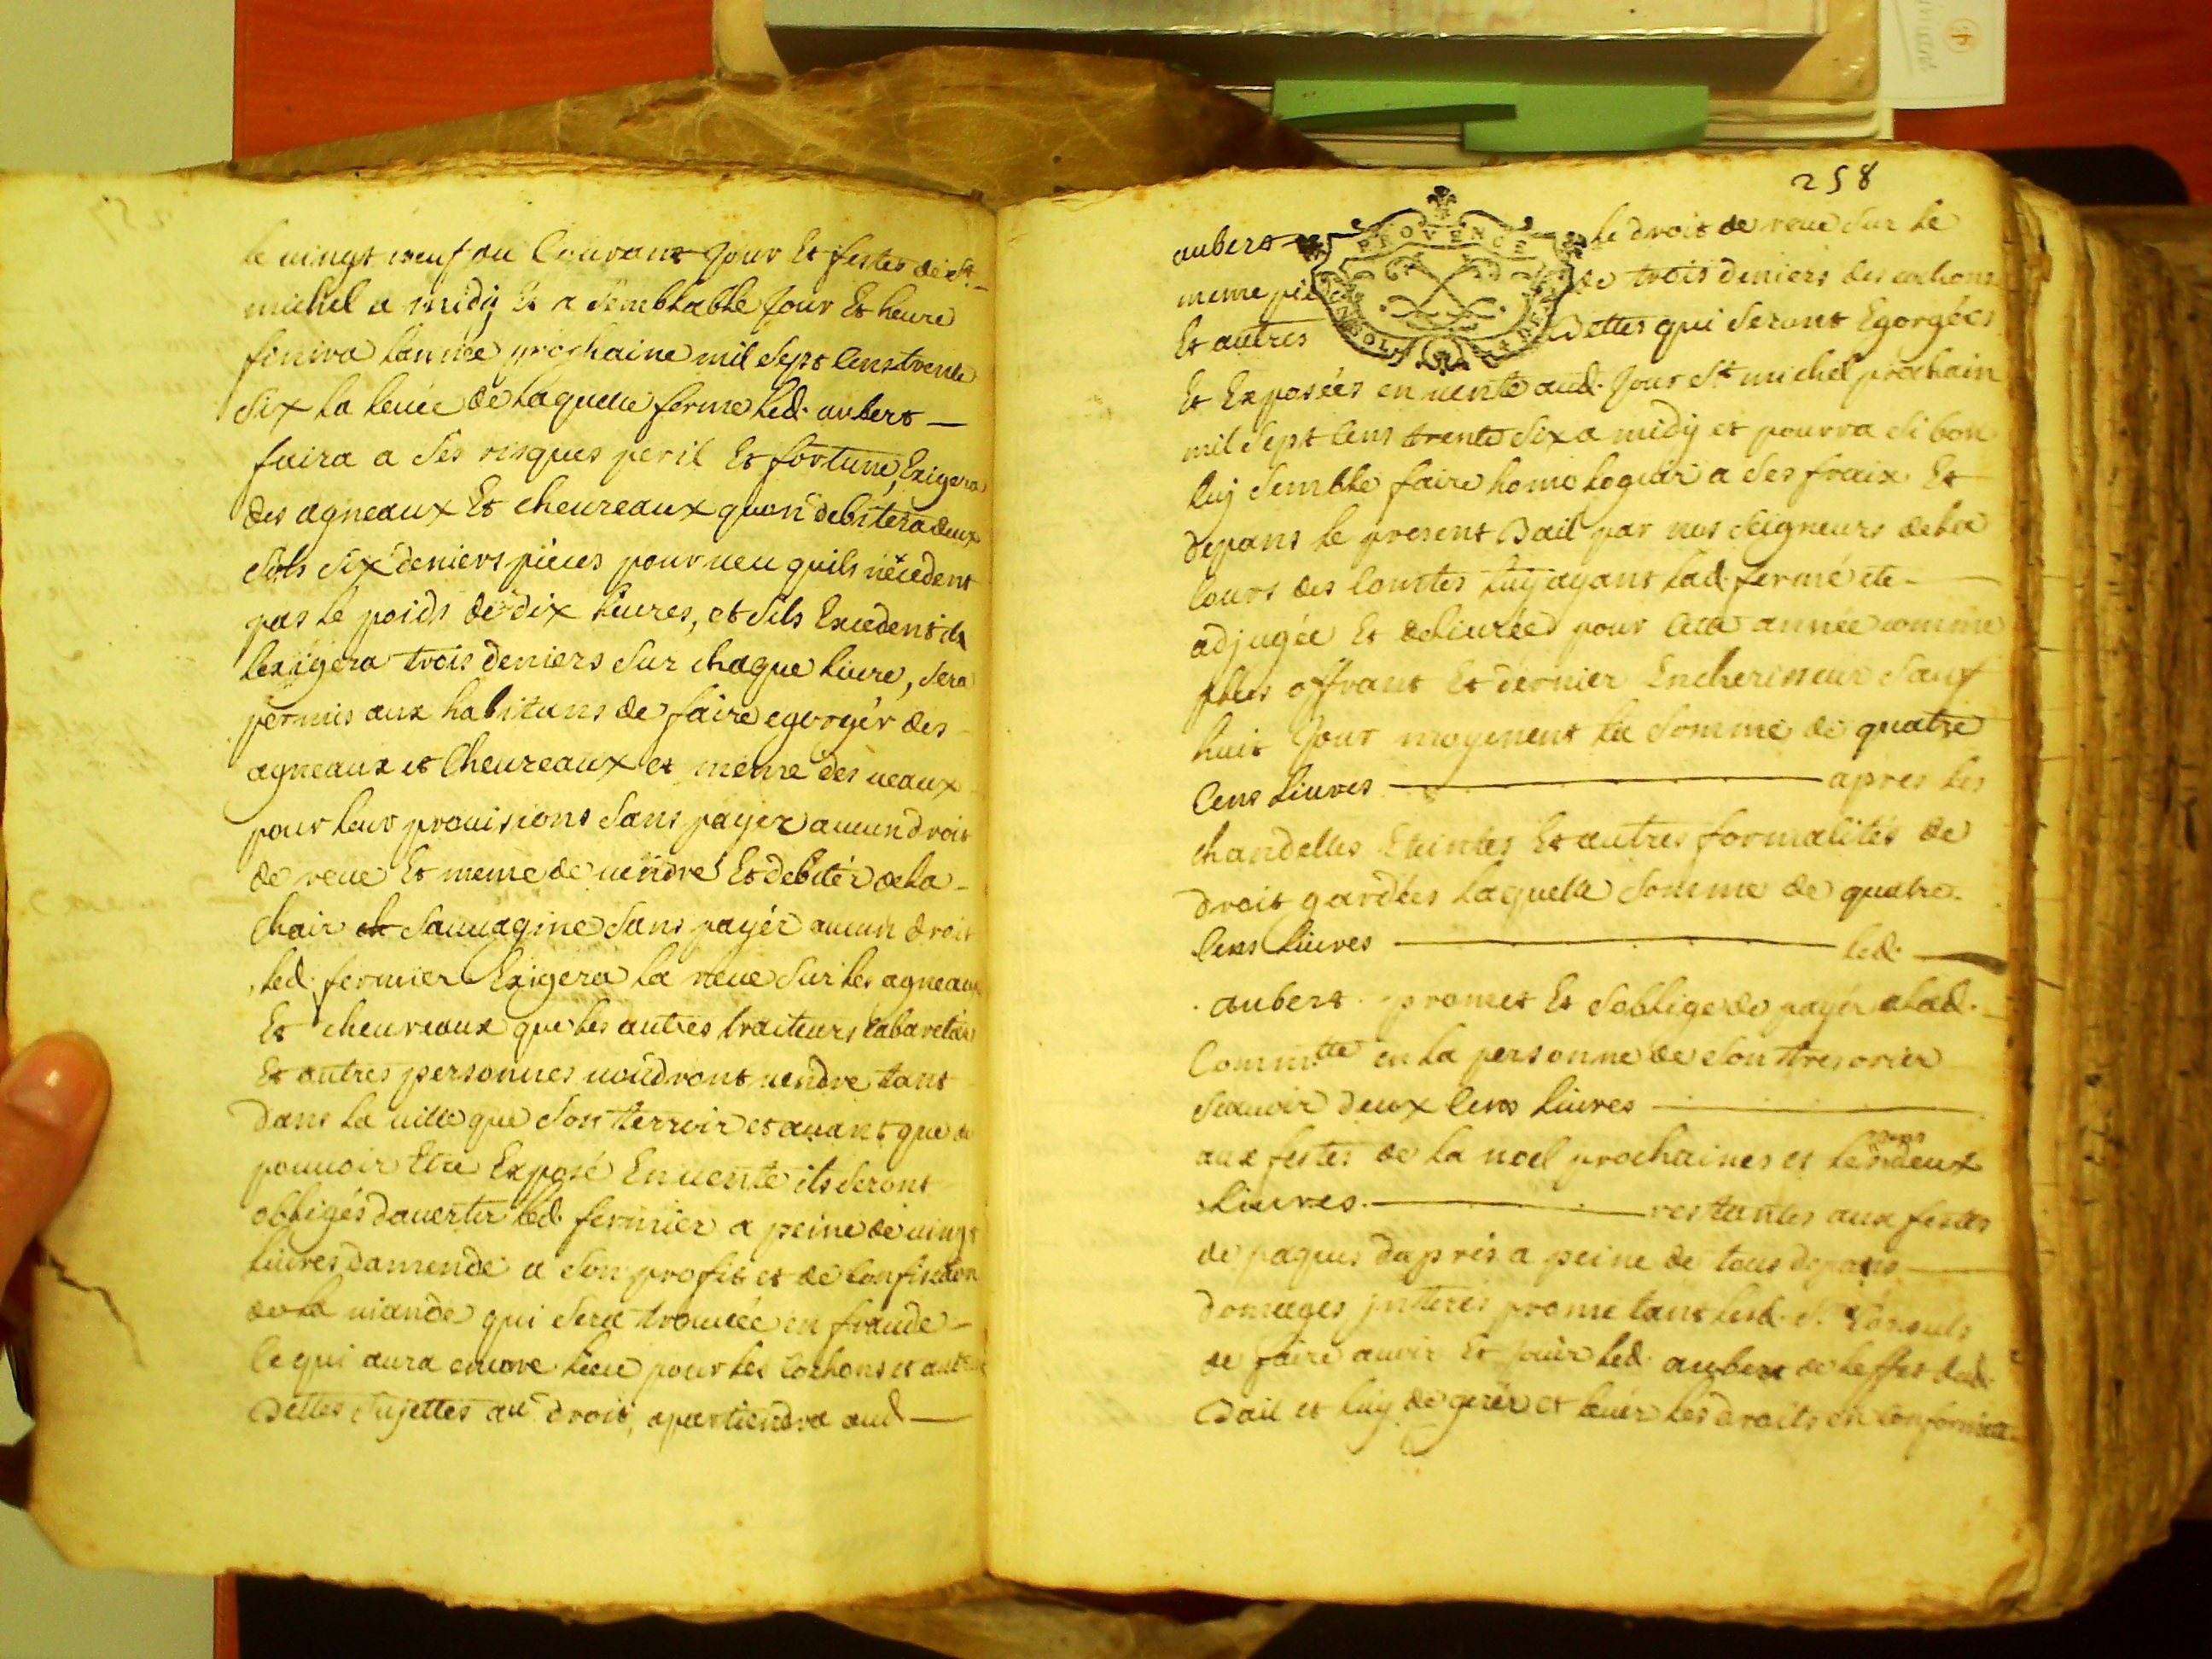 le vingt neuf du Courant Jour Et festes de St
michel a midy Et a Semblable Jour Et heure
finira lannée prochaine mil Sept Cens trente
Six la levée de laquelle ferme led. aubert
faira a Ses risques peril Et fortune, Exigera
des agneaux Et chevreaux quon debitera deux
Sols Six deniers pieces pourveu quils nécedent
pas le poids de dix livres, et Sils Excedent
lexigera trois deniers Sur chaque livre, Sera
permis aux habitans de faire egorgér des
agneaux et Chevreaux et meme des veaux
pour leur provisions Sans payer aucun droit
de reve Et meme de vendre Et debiter de la
Chair Sauvagine Sans payér aucun droit
led. fermier Exigera la reve Sur les agneaux
Et chevreaux que les autres traiteurs Cabaretiers
Et autres personnes voudront vendre tant
dans la ville que Son terroir et avant que de
pouvoir Etre Exposé En vente ils Seront
obligés davertir led. fermier a peine de vingt
livres damende a Son profit et de Confiscation
de la viande qui Sera trouvée en fraude
Ce qui aura encore lieu pour les Cochons et autres
Bettes Sujettes au droit, apartiendra aud
258
aubert le droit de reve Sur le
meme pié de trois deniers des cochons
PROVENCE
Et autres Bettes qui Seront Egorgées
Et Exposées en vente aud. Jour St michel prochain
mil Sept Cens trente Six a midy et pourra Si bon
luy Semble faire homologuér a Ses fraix Et
depans le present Bail par nos Seigneurs de la
Cour des Comtes luy ayant lad. ferme éte
adjugée Et delivrée pour Cette année comme
plus offrant Et dernier Encherisseur Sauf
huit Jour moyenent la Somme de quatre
Cens livres apres les
chandelles Eteintes Et autres formalités de
droit gardées laquelle Somme de quatre
Cens livres led.
aubert promet Et Soblige de payér a lad.
Commtté en la personne de Son tresorier
Scavoir deux Cens livres
aux festes de la noel prochaines et les deux
Cens
livres restantes aux festes
de paques dapres a peine de tous depans
domages jnteres prometant lesd. Srs Consuls
de faire avoir Et Jouir led. aubert de leffet dud.
Bail et luy de gerér et levér les droits en Conformité